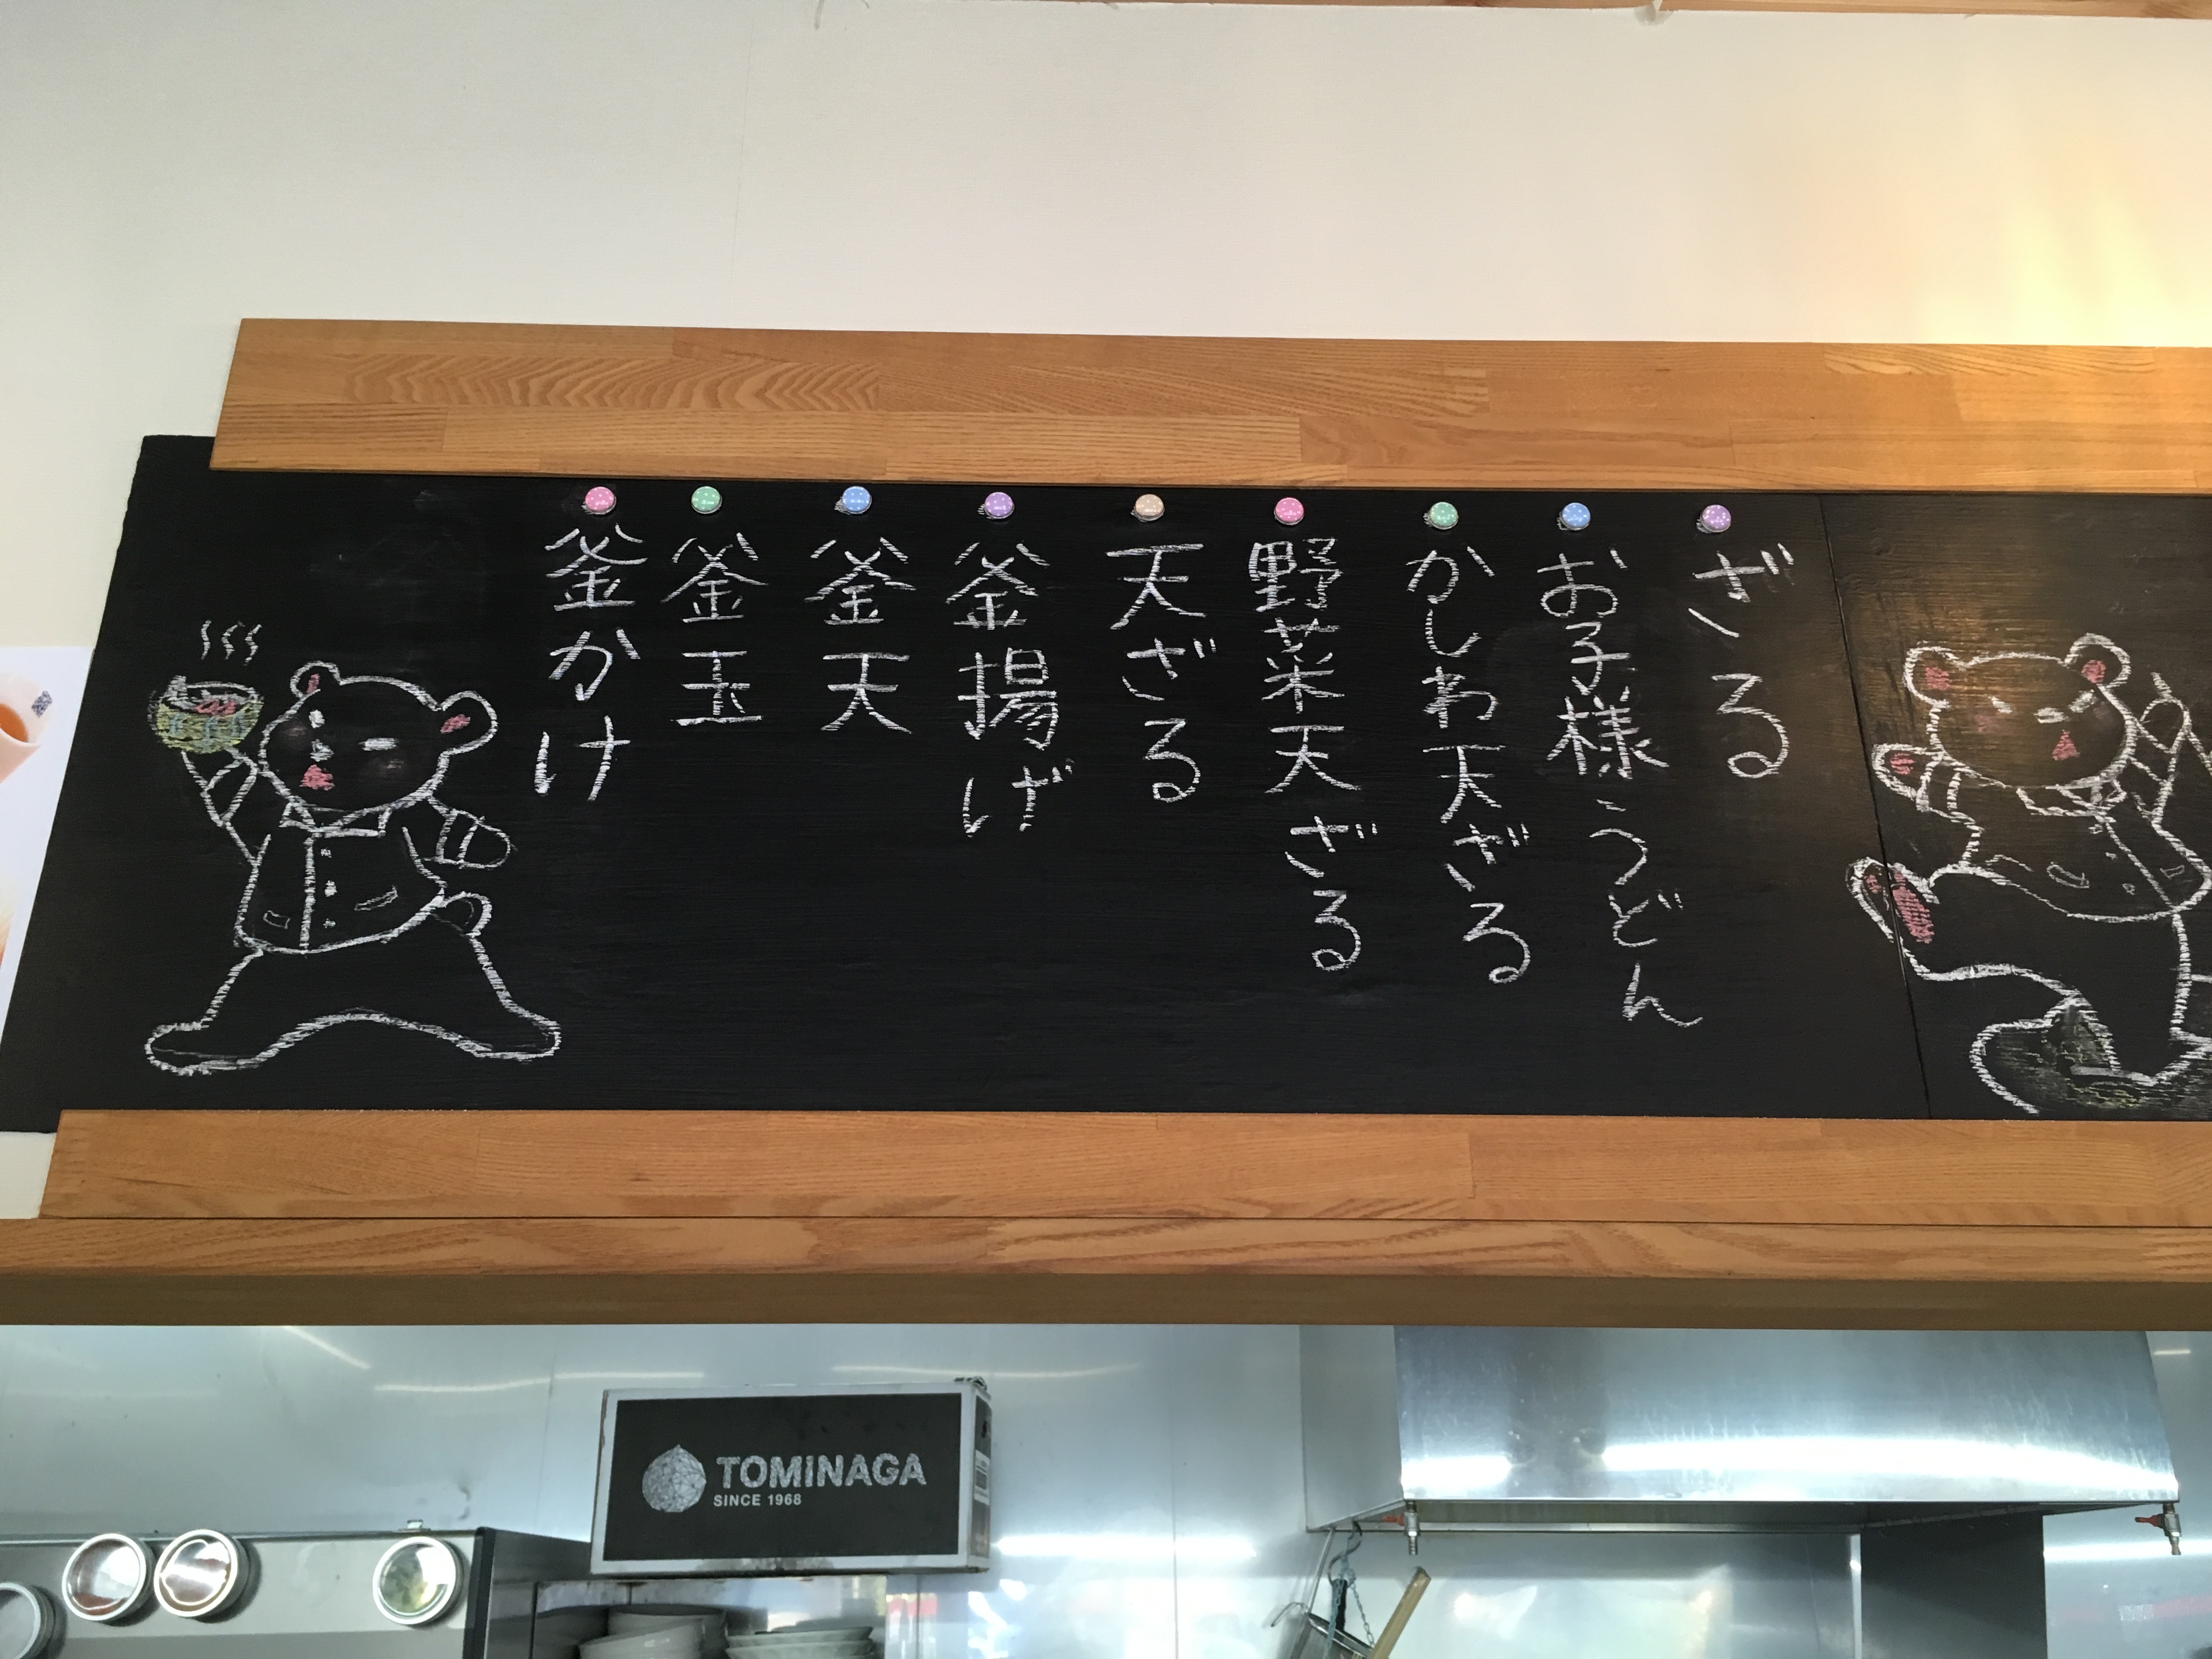 ざる
お子様うどん
かしわ天ざる
野菜天ざる
天ざる
釜揚げ
釜天
釜玉
釜かけ
TOMINAGA
SINCE 1968